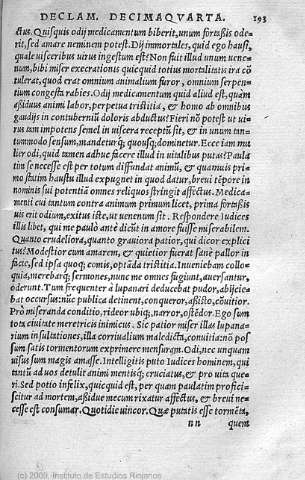 DECLAM. DECIMAQVARTA. 193
ctus. Quisquis odij medicamentum biberit, unum fortaßis ode-
rit, sed amare neminem potest. Dij immortales, quid ego hausi,
quale uisceribus uirus ingestum est? Non fuit illud unum uene-
num, bibi miser execrationis quicquid totius mortalitatis ira có
tulerat, quod omnium animalium furor, omnium serpen-
tium congesta rabies. Odi medicamentum quid aliud est, quàm
aßiduus animi labor, perpetua tristitia, & homo ab omnibus
gaudijs in contubernium doloris abductus? Fieri nõ potest ut ui-
rus tam impotens semel in uiscera receptũ sit, & in unum tan-
tummodo sensum, mandeturq;, quousq; dominetur. Ecce iam mu
lier odi, quid tamen adhuc facere illud in uitalibus putas? Paula
tim se necesse est per totum diffundat animũ, & quamuis pri-
mo statim haustu illud expugnet in quod datur, breui tẽpore in
nominis sui potentiã omnes reliquos stringit affectus. Medica-
menti cui tantum contra animum primum licet, prima fortaßis
uis erit odium, exitus iste, ut uenenum sit. Respondere Iudices
illis libet, qui me paulò antè dicũt in amore fuisse miserabilem.
Quanto crudeliora, quanto grauiora patior, qui dicor explici
tus? Modestior eum amarem, & quietior fuerat sanè pallor in
facie, sed ipsa quoq; comis, optãda tristitia. Inueniebam collo-
quia, merebarq; sermones, nunc me omnes fugiunt, auersantur,
oderunt. Tum frequenter à lupanari deducebat pudor, abijcie-
bat occursus: nũc publica detinent, conqueror, aßisto, cõuitior.
Prò miseranda conditio, rideor ubiq;, narror, ostẽdor. Ego sum
tota ciuitate meretricis inimicus. Sic patior miser illas lupana-
rium insultationes, illa conuiualium maledicta, conuitia: nõ pos
sum satis tormentorum exprimere mensuram. Odi, nec unquam
uisus sum magis amasse. Intelligitis puto Iudices hominem, qui
tanti ad uos detulit animi mentisq; cruciatus, & pro uita que-
ri. Sed potio infelix, quicquid est, per quam paulatim profici-
scitur ad mortem, aßidue mecum rixatur affectus, & breui ne-
cesse est consumar. Quotidie uincor. Quæ putatis esse tormẽta,
nn quem
(c) 2009, Instituto de Estudios Riojanos